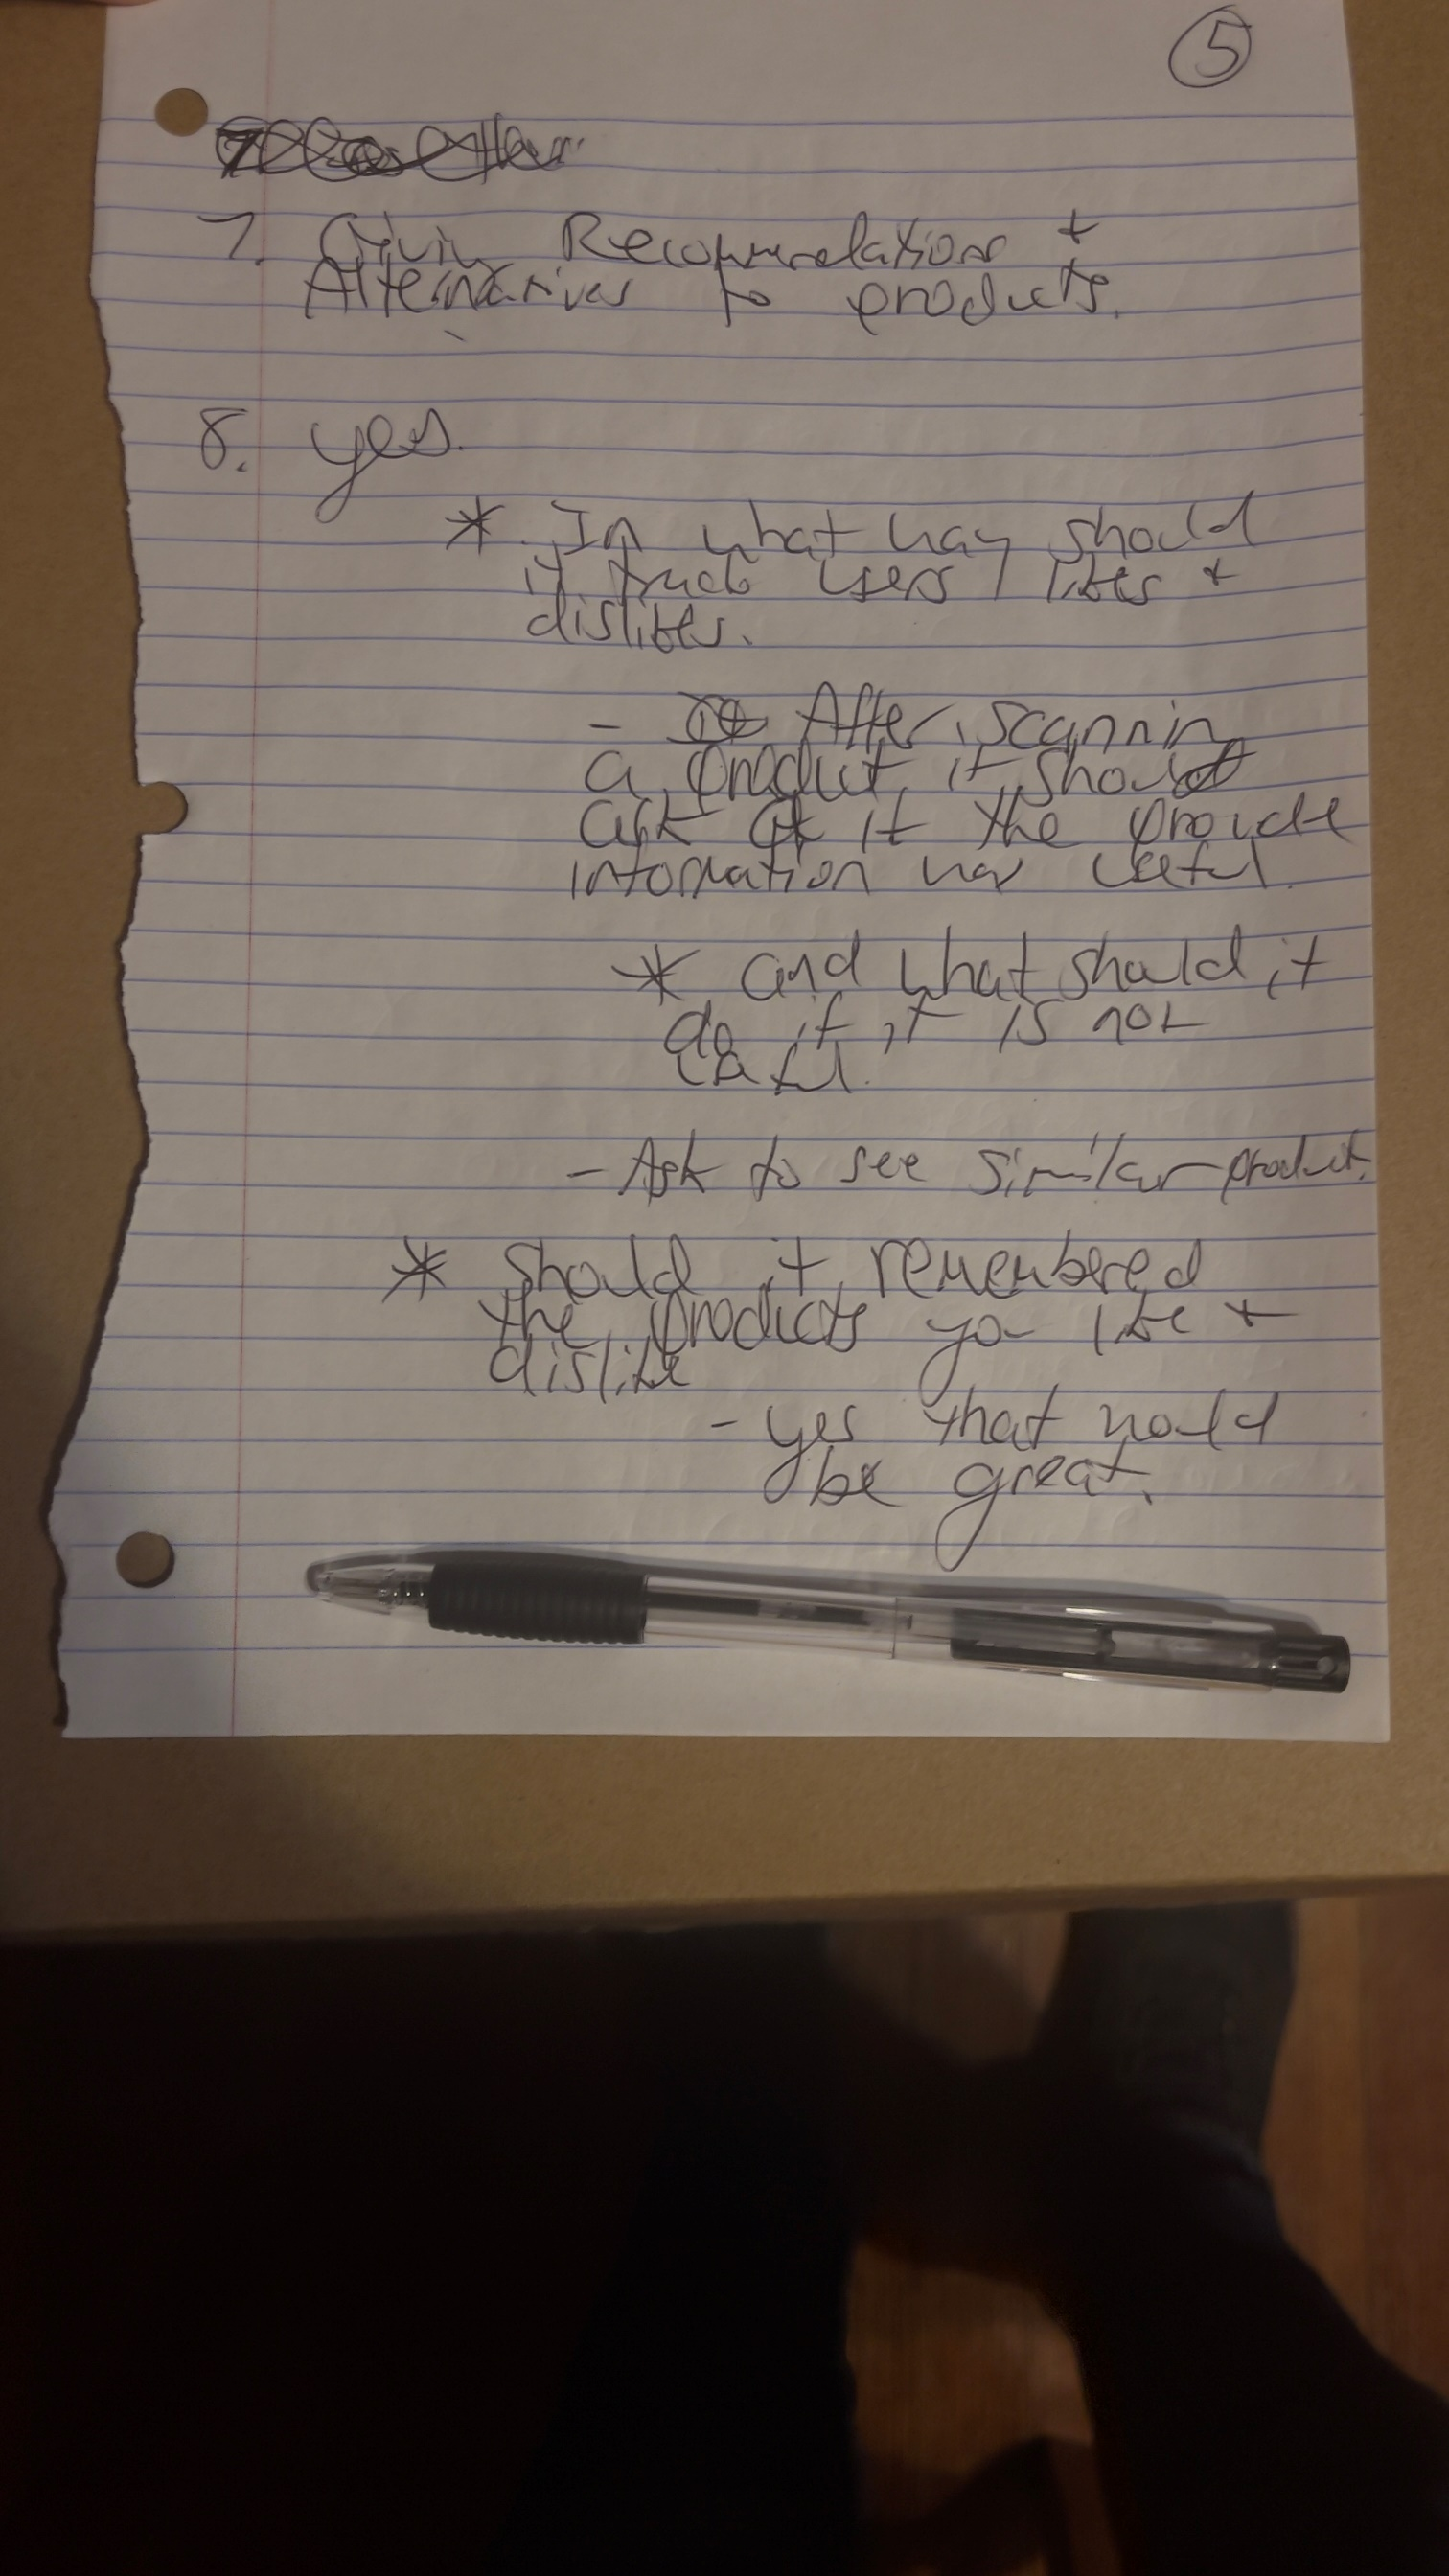 5
7. Givin Recommendations +
Alternatives to products.
8. yes.
* In what way should
it track users likes +
dislikes.
- After scannin
a product it should
ask if the provide
information was useful.
* and what should it
do if it is not
useful.
- Ask to see similar product.
* should it remembered
the products you like +
dislike
- yes that would
be great.